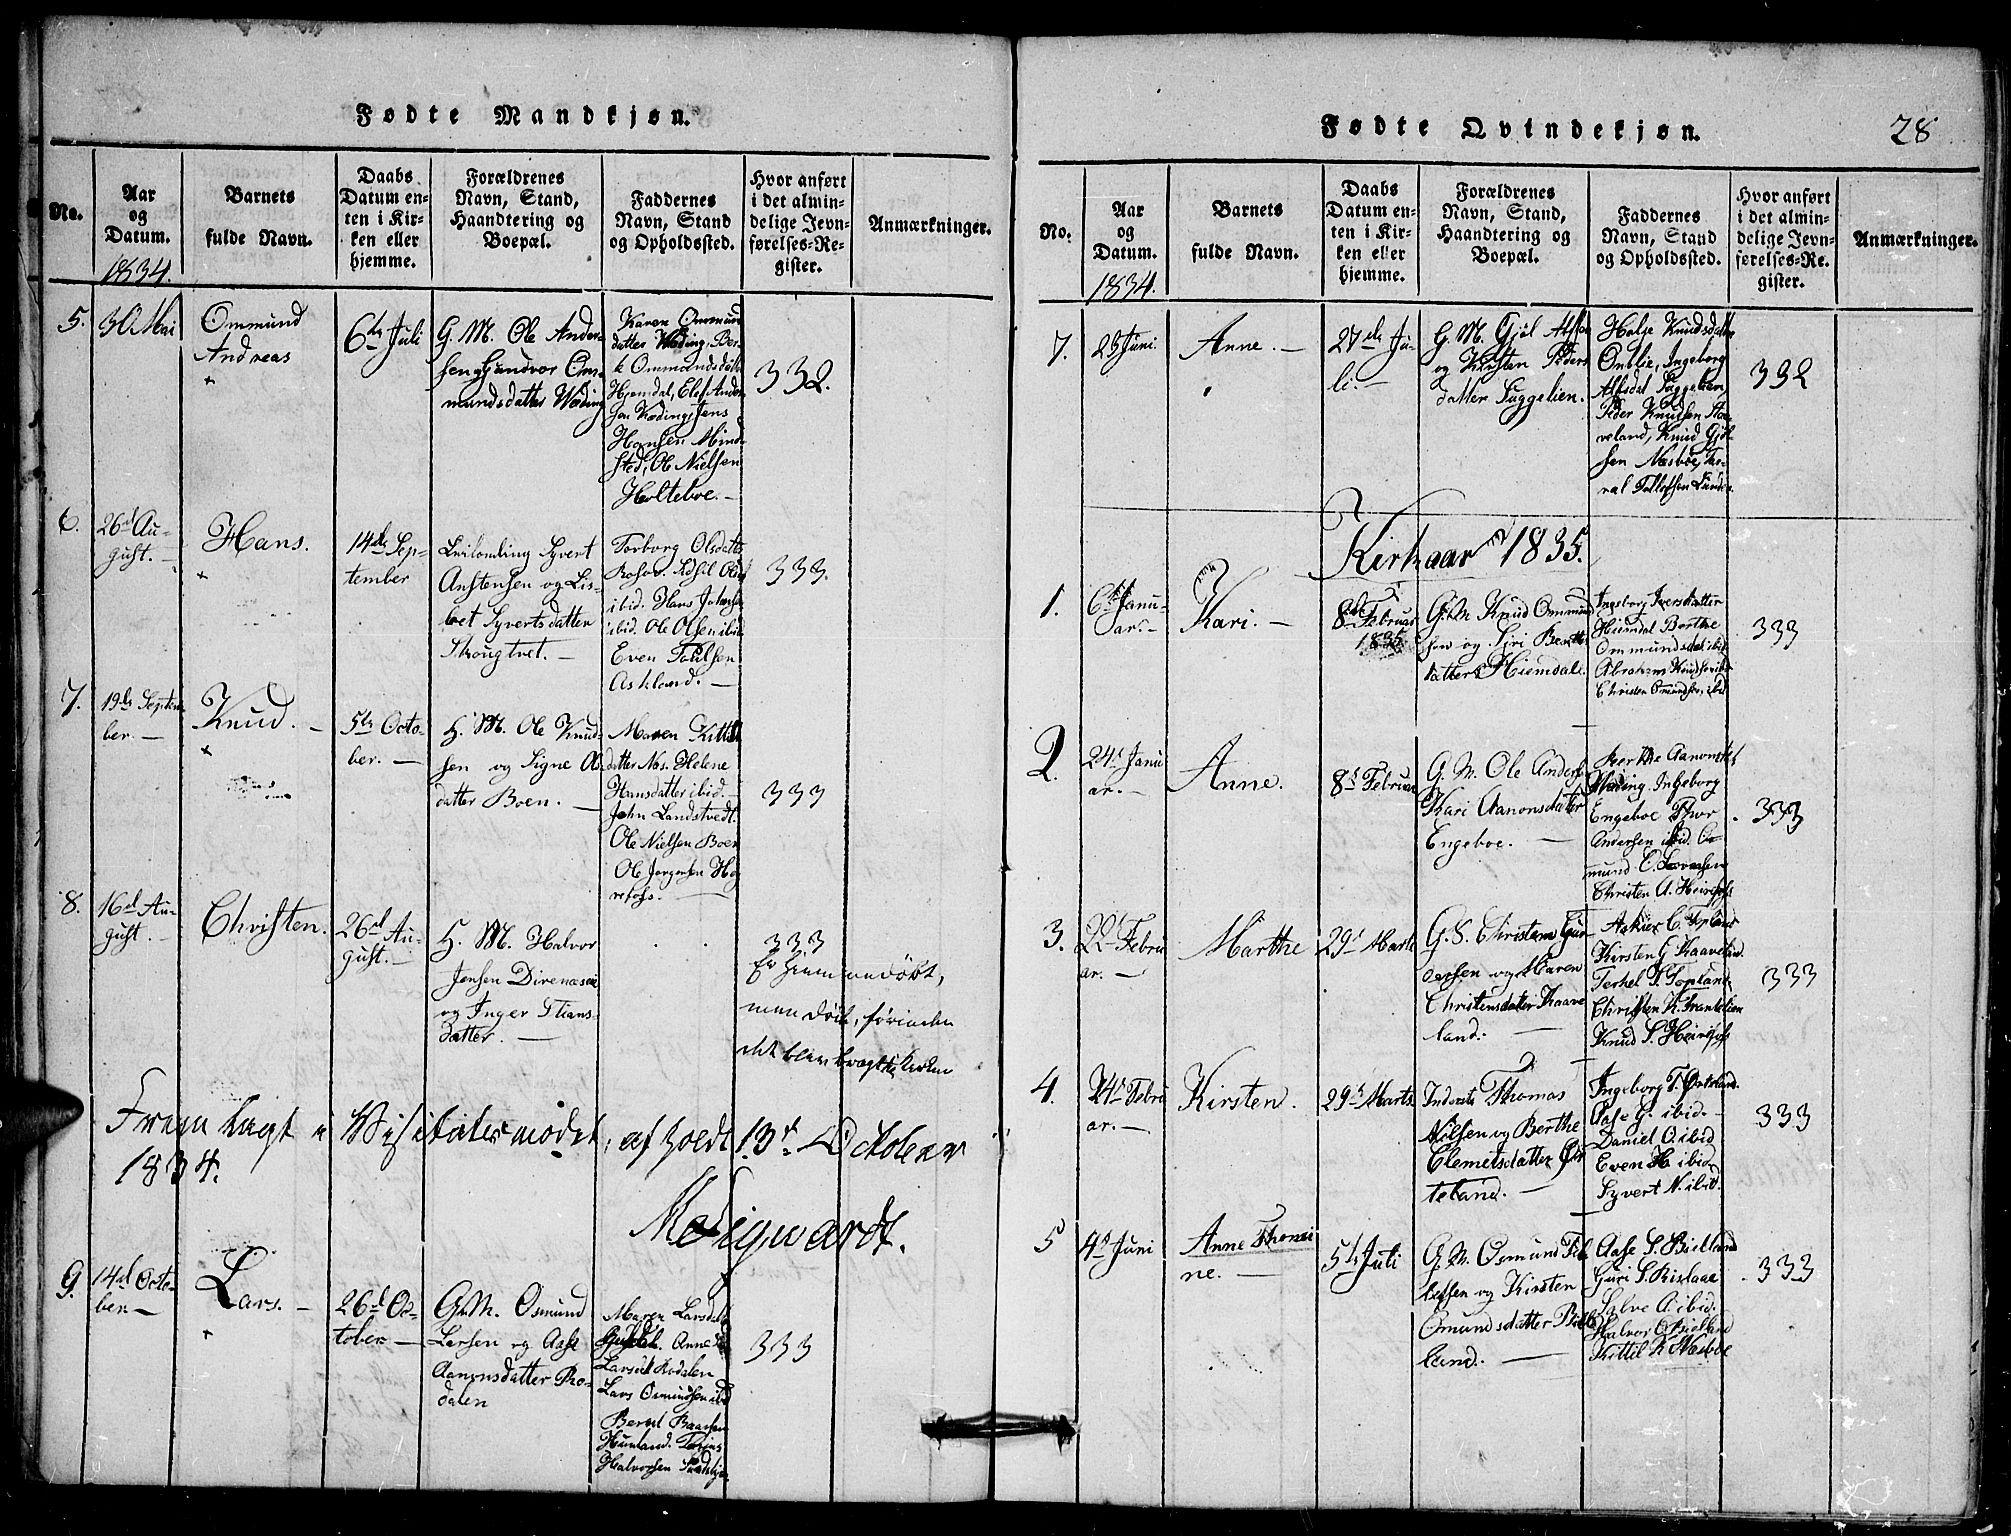 Fødte Mandkjøn.
No.
Aar
og
Datum.
1834.
Barnets
fulde Navn.
Daabs
Datum en-
ten i Kir-
ken eller
hjemme.
Forældrenes
Navn, Stand,
Haandtering og
Boepæl.
Faddernes
Navn, Stand
og Opholdssted.
Hvor anført
i det almin-
delige Jevn-
førelses-Re-
gister.
Anmærkninger.
5.
30 Mai
Ommund
Andreas
6te Juli
G. M. Ole Ander-
sen Gundvor Om-
mundsdatter Wæding
Karen Ommund
datter Wæding, Ber-
Ommundsdatter
Hjemdal, Olef Ander
sen Wæding, Jens
Hansen Mind-
sted, Ole Nielsen
Holteboe. —
332.
6.
26d Au-
gust. —
Hans.
14de Sep-
tember
Leilending Syvert
Anstensen og Lis-
bet Syvertsdatter
Skougtvet. —
Torborg Olsdatter
ibid. Hans Johnsen
ibid. Ole Olsen ibid
Even Poulsen
Askland. —
333.
7.
19de Septem-
ber. —
Knud. —
5te Octo-
ber. —
H. M. Ole Knud-
sen og Signe Ols-
datter Boen. —
Maren Kittils
datter Næs. Helene
Hansdatter ibid. —
John Landstvedt.
Ole Nielsen Boen
Ole Jørgensen Ho-
refoss. —
333
8.
16d Au-
gust. —
Christen.
26d Au-
gust. —
H. M. Halvor
Jensen Direnæsen
og Inger Stians-
datter. —
333
Er hjemmedøbt,
men døde, førinden
det blev bragt til Kirken
Fremlagt i Visitatsmødet, afholdt 13d October
1834.
Mæigwardt.
9.
14d Octo-
ber —
Lars. —
26d Oc-
tober —
G. M. Osmund
Larsen og Aase
Aanonsdatter Ro-
dalen
Maren Larsdatter
Anne
Larsdt Rodalen
Lars Osmundsen ibid
Bernt Baarsen
Hunland. Tarjus
Halvorsen
333
Fødte Qvindekjøn.
28
No.
Aar
og
Datum.
1834.
Barnets
fulde Navn.
Daabs
Datum en-
ten i Kir-
ken eller
hjemme.
Forældrenes
Navn, Stand,
Haandtering og
Boepæl.
Faddernes
Navn, Stand
og Opholdssted.
Hvor anført
i det almin-
delige Jevn-
førelses-Re-
gister.
Anmærkninger.
7.
25 Juni
Anne. —
27de Ju-
li. —
G. M. Gjøl
og Kirsten Peders
datter Suggelien.
Helje Knudsdatter
Omblie, Ingeborg
Alfsdat Suggelien
Peder Knudsen Staa-
veland, Knud Gjøl-
sen Næsboe, Tar-
332
Kirkaar 1835.
1.
6te Janu-
ar. —
Kari. —
8de Februar
1835
G. M. Knud Ommund
sen og Siri Berthe
datter Hiemdal.
Ingeborg Iversdatter
Hiemdal Berthe
Ommundsdat ibid
Abraham Knudsen ibid
Christen Omundsen, ibid
333
2.
24d Janu
ar. —
Anne.
8d Februar
G. M. Ole Anders
Kari Aanonsdatter
Engeboe. —
Berthe Aanonsdat
Wæding. Ingeborg
Engeboe Thor
Andersen ibid. Om-
mund
Christen A. Heirefoss
333
3.
22d Febru
ar. —
Marthe
29d Marts
G. S. Christen Gun-
dersen og Maren
Christensdatter Kaave-
land. —
Kirsten G Kaaveland
Terkel T. Topland.
Christen K. Trontelien
Knud S. Heirefoss
333
4.
24d Febru
ar. —
Kirsten.
29d Marts
Inderste Thomas
Nilsen og Berthe
Clemetsdatter Øk-
teland. —
Ingeborg T. Økteland.
Aase G. ibid. —
Daniel O. ibid
Even H ibid.
Syvert N. ibid.
333
5
4d Juni
Anne Thomi
ne. —
5te Juli
G. M. Osmund Til
lefsen og Kirsten
Omundsdatter Biel-
land. —
Aase S. Bielland
Guri S. Rislaae
Salve A. ibid.
Halvor O Bielland
Kittil K Næsboe
333